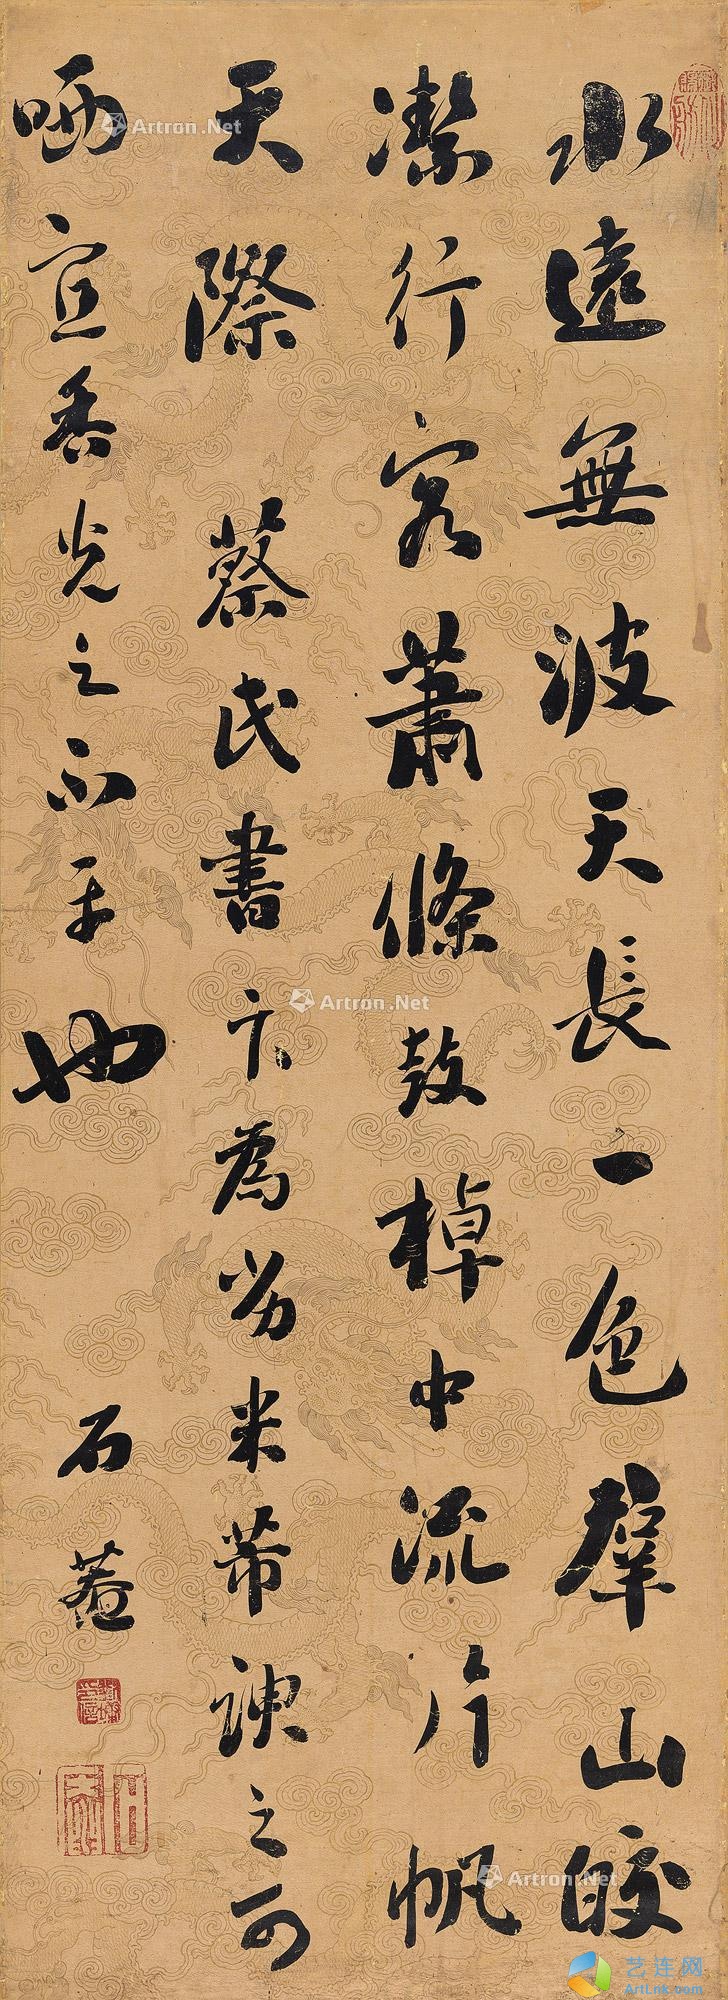 水遠無波天長一色群山皎
潔行客蕭條鼓棹中流片帆
天際 蔡氏書卞為劣米芾諛之可
哂宜香光之不平也
石菴
Artron.Net
Artron.Net
Artron.Net
艺连网
ArtLnk.com